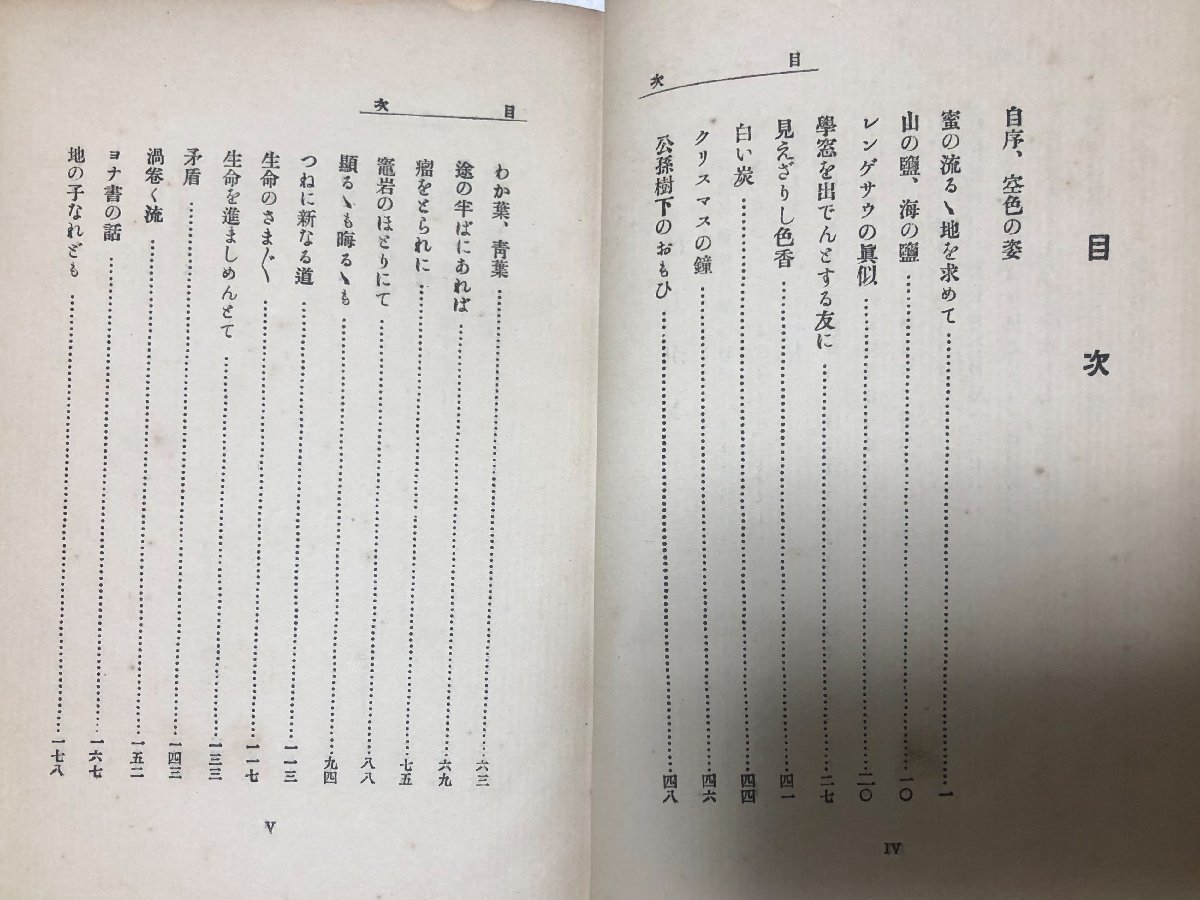 目次
目次
自序、空色の姿
蜜の流るゝ地を求めて……一
山の鹽、海の鹽……一〇
レンゲサウの眞似……二〇
學窓を出でんとする友に……二七
見えざりし色香……四一
白い炭……四四
クリスマスの鐘……四六
公孫樹下のおもひ……四八
IV
目次
わか葉、靑葉……六三
途の半ばにあれば……六九
瘤をとられに……七五
竈岩のほとりにて……八八
顯るゝも晦るゝも……九四
つねに新なる道……一一三
生命のさま〴〵……一一七
生命を進ましめんとて……一三三
矛盾……一四三
渦卷く流……一五二
ヨナ書の話……一六七
地の子なれども……一七八
V